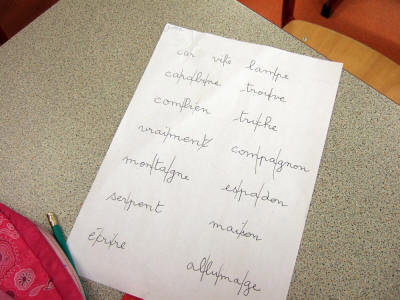 car vite lampe
carabine trouve
combien triche
vraiment compagnon
montagne espadon
serpent maison
écrire allumage